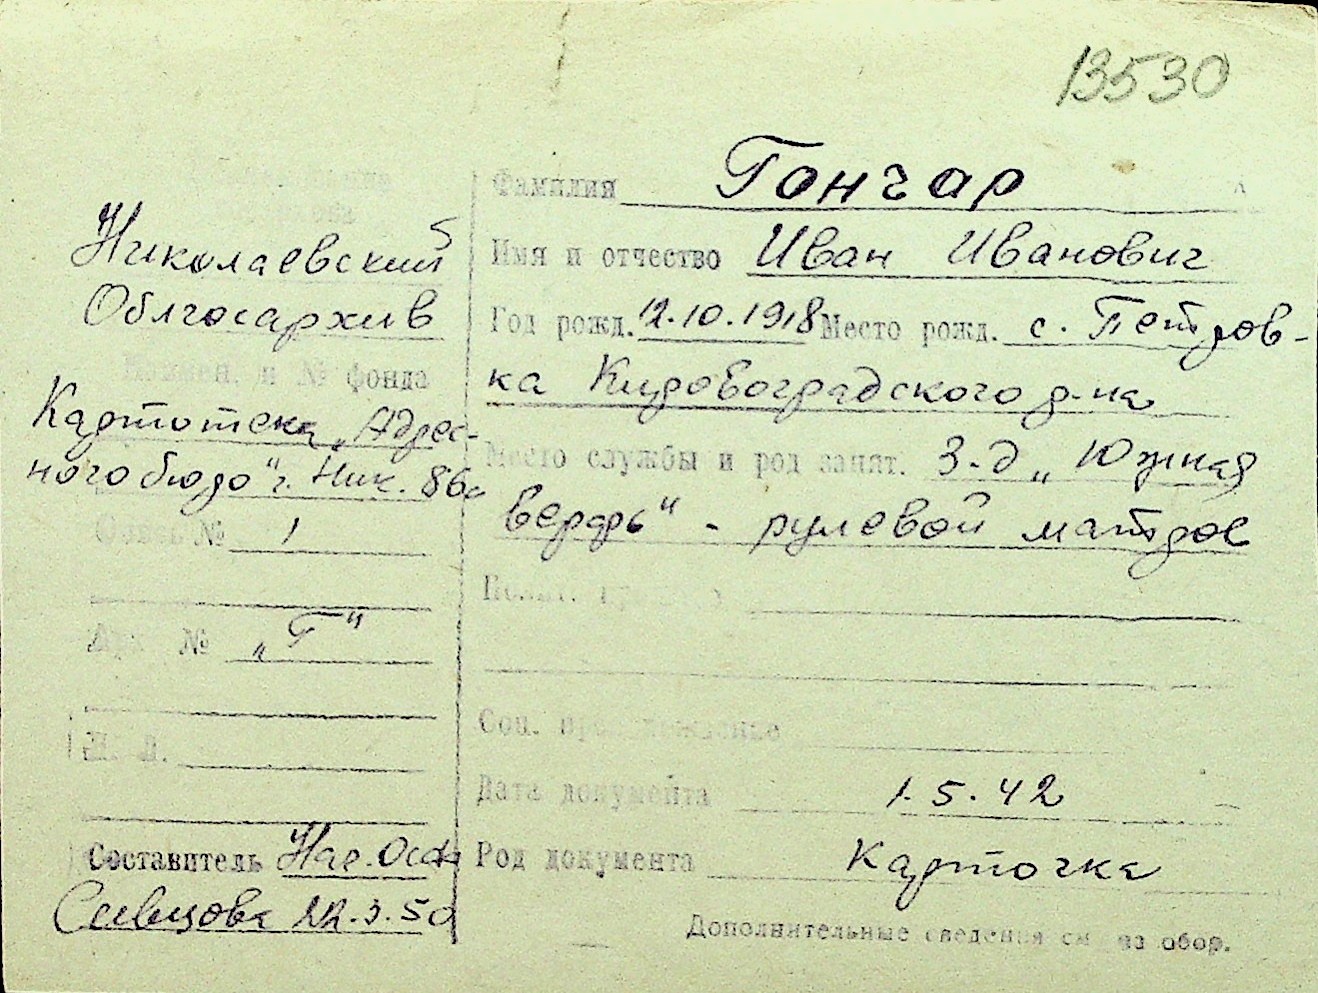 13530
Николаевский
Облгосархив
Наимен. и № фонда
Картотека „Адрес-
ного бюро“ г. Ник.
Опись № 1
Арх. № „Г“
Н. Л.
Составитель
12.3.50
Фамилия Гончар
Имя и отчество Иван Иванович
Год рожд. 12.10.1918 Место рожд. с. Петров-
ка Кировоградского р-на
Место службы и род занят. З-д „Южная
верфь“ - рулевой матрос
Соц. происхождение
Дата документа 1.5.42
Род документа Карточка
Дополнительные сведения см на обор.